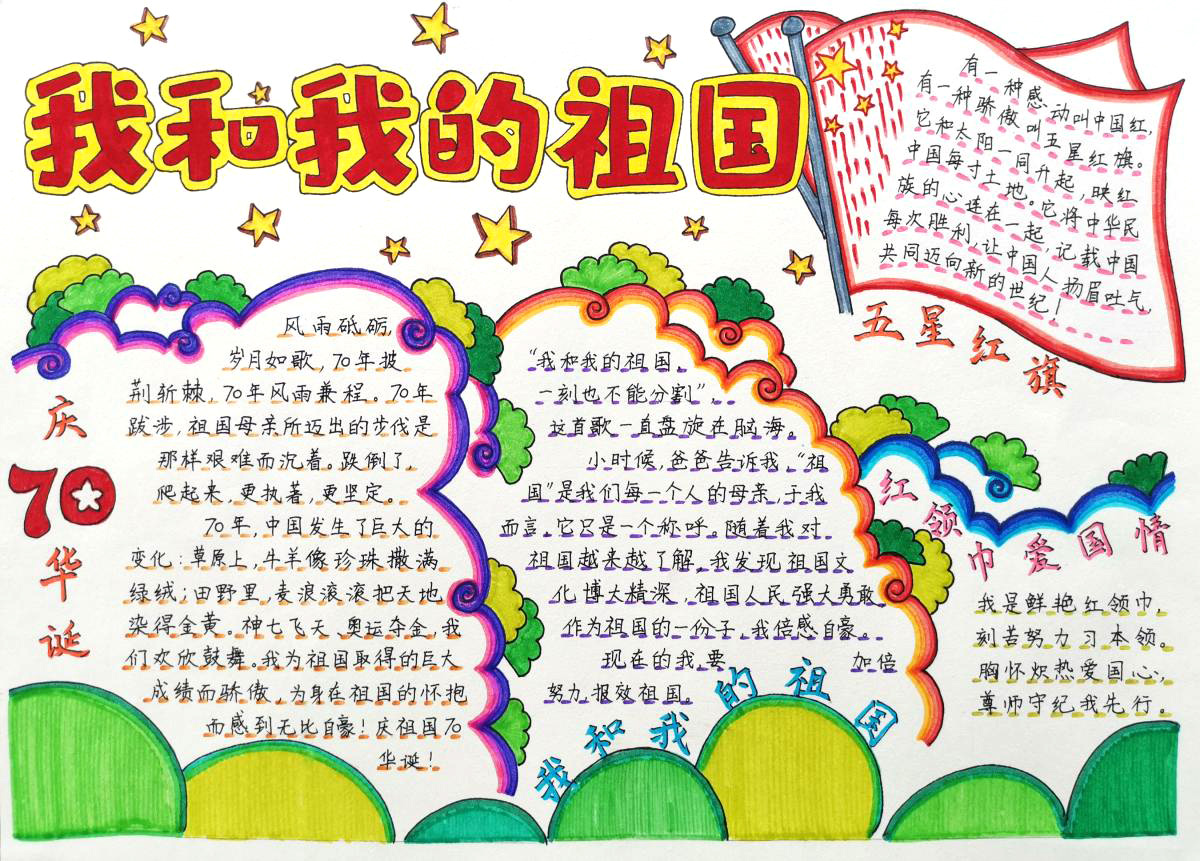 我和我的祖国
有一种感动叫中国红,
有一种骄傲叫五星红旗。
它和太阳一同升起,映红
中国每寸土地。它将中华民
族的心连在一起,记载中国
每次胜利,让中国人扬眉吐气,
共同迈向新的世纪!
五星红旗
庆70华诞
风雨砥砺,
岁月如歌,70年披
荆斩棘,70年风雨兼程。70年
跋涉,祖国母亲所迈出的步伐是
那样艰难而沉着。跌倒了,
爬起来,更执著,更坚定。
70年,中国发生了巨大的
变化:草原上,牛羊像珍珠撒满
绿绒;田野里,麦浪滚滚把天地
染得金黄。神七飞天、奥运夺金,我
们欢欣鼓舞。我为祖国取得的巨大
成绩而骄傲,为身在祖国的怀抱
而感到无比自豪!庆祖国70
华诞!
“我和我的祖国,
一刻也不能分割”,
这首歌一直盘旋在脑海。
小时候,爸爸告诉我,“祖
国”是我们每一个人的母亲,于我
而言,它只是一个称呼。随着我对
祖国越来越了解,我发现祖国文
化博大精深,祖国人民强大勇敢,
作为祖国的一份子,我倍感自豪。
现在的我,要加倍
努力,报效祖国。
我和我的祖国
红领巾爱国情
我是鲜艳红领巾,
刻苦努力习本领。
胸怀炽热爱国心,
尊师守纪我先行。